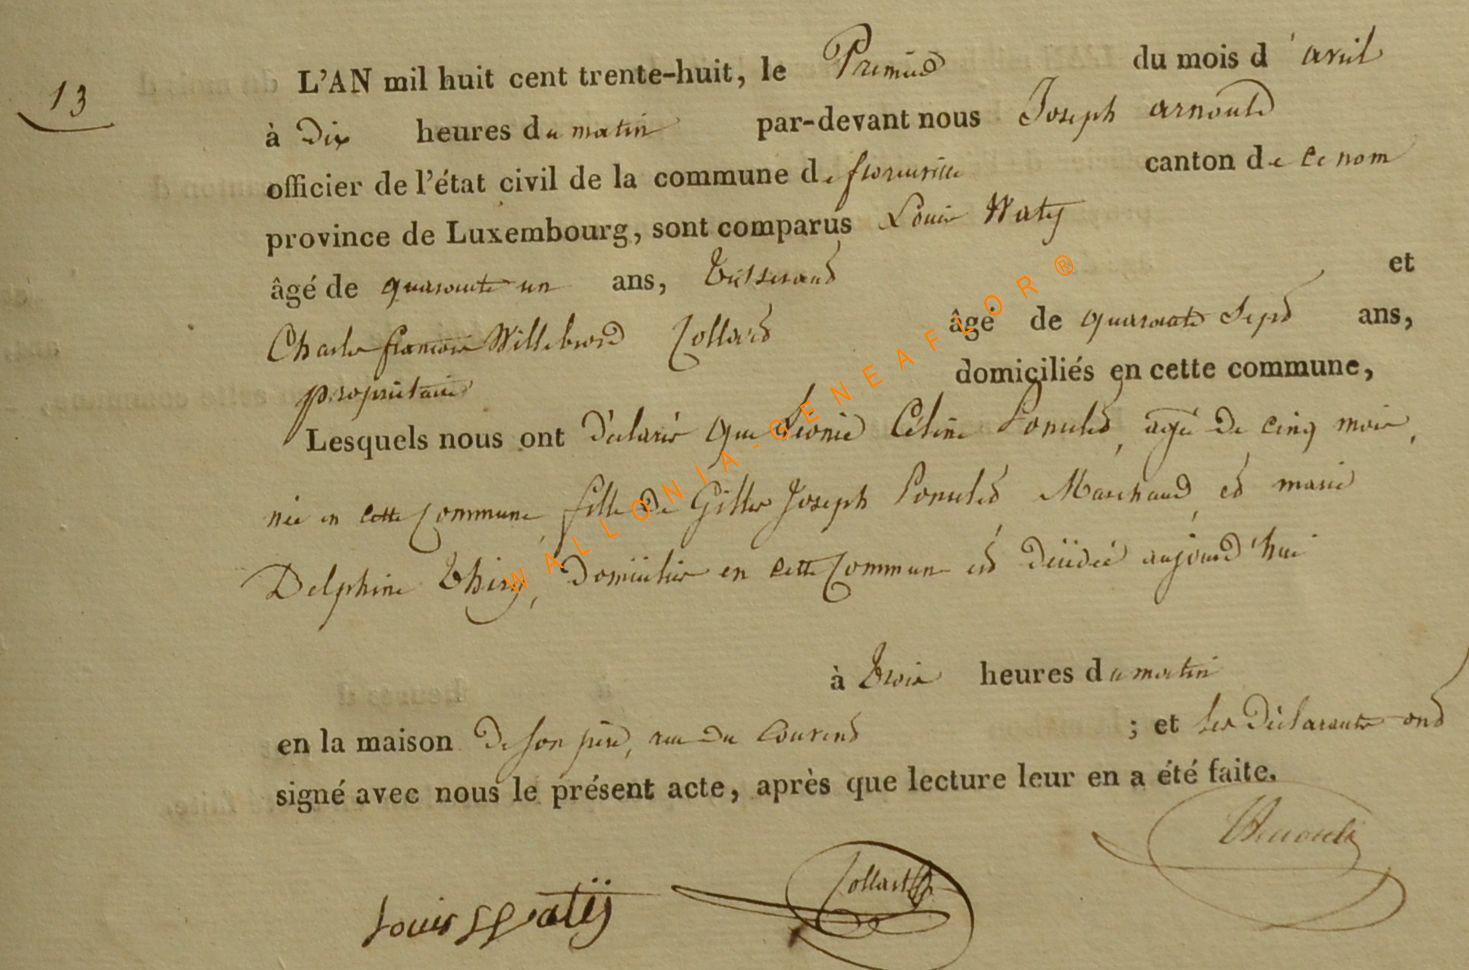 13
L'AN mil huit cent trente-huit, le Premier du mois d'avril
à Dix heures du matin par-devant nous Joseph arnould
officier de l'état civil de la commune de florenville canton de ce nom
province de Luxembourg, sont comparus Louis Waty
âgé de quarante un ans, tisserand et
Charles françois Willebrord Collard âgé de quarante Sept ans,
propriétaire domiciliés en cette commune,
Lesquels nous ont déclaré que Leonie Céline Ponulet, agée de cinq mois,
née en cette Commune, fille de Gilles Joseph Ponulet Marchand, et marie
Delphine Thiry, domiciliés en cette Commune est décédée aujourd'hui
à trois heures du matin
en la maison de son père, rue du Couvent ; et les déclarants ont
signé avec nous le présent acte, après que lecture leur en a été faite.
Louis Watÿ Collard Arnould
WALLONIA-GENEAFLOR®